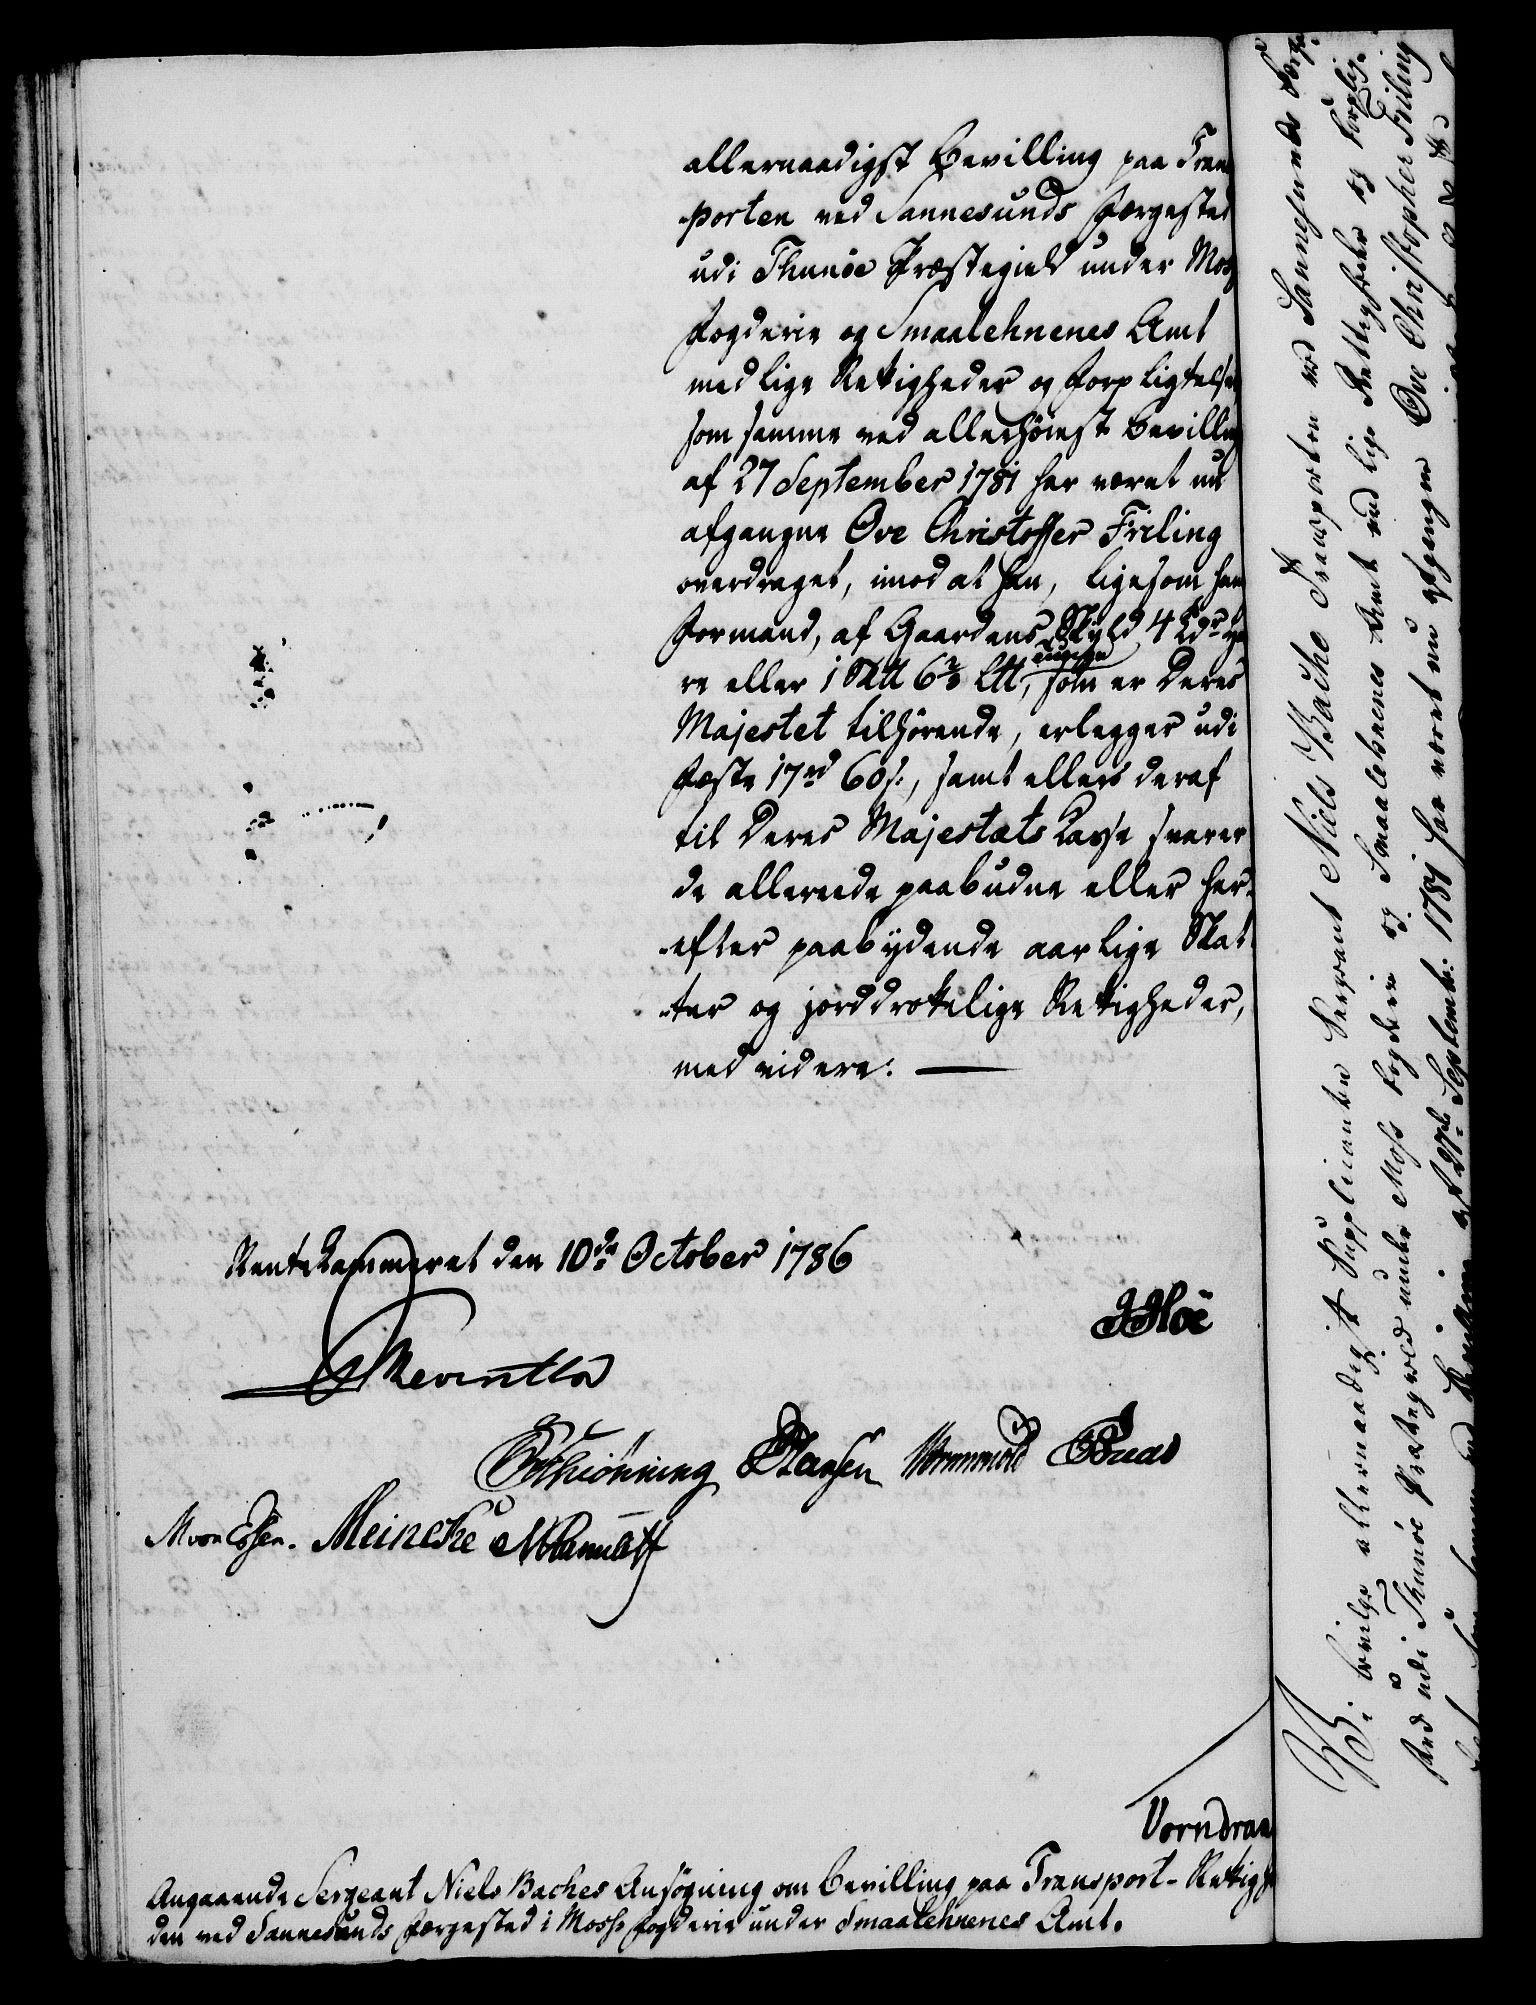 allernaadigst Bevilling paa Trans
-porten ved Sannesunds Færgested
udi Thunøe Præstegield under Moss
Fogderie og Smaalehnenes Amt
med lige Rettigheder og Forpligtelser
som samme ved allerhöiest Bevilling
af 27 September 1781 har været nu
afgangne Ove Christoffer Friling
overdraget, imod at han, ligesom hans
Formand, af Gaardens Skyld 4
re eller 1 6 2/3 som er Deres
Majestet tilhörende, erlegger udi
Fæste 17 rd 60 s:, samt ellers deraf
til Deres Majestæts Casse svarer
de allerede paabudne eller her-
-efter paabydende aarlige Skat
-ter og jorddrotlige Rettigheder,
med videre:
Rentekammeret den 10de October 1786
JHöe
Reventlow
Schiönning Hansen Wormskiold
M von Essen. Meincke
Vorndran
Angaaende Sergeant Niels Baches Ansögning om Bevilling paa Transport-Rettighe
den ved Sannesunds Færgested i Moss Fogderie under Smaalehnenes Amt.
Vi bevilge allernaadigst Supplicanten Sergeant Niels Bache Transporten ved Sannesunds Færge-
sted udi Thunöe Præstegield under Moss Fogderie og Smaalehnenes Amt med lige Rettigheder og Forplig-
som samme ved Bevilling af 27de Septemb: 1781 har været nu afgangne Ove Christopher Friling